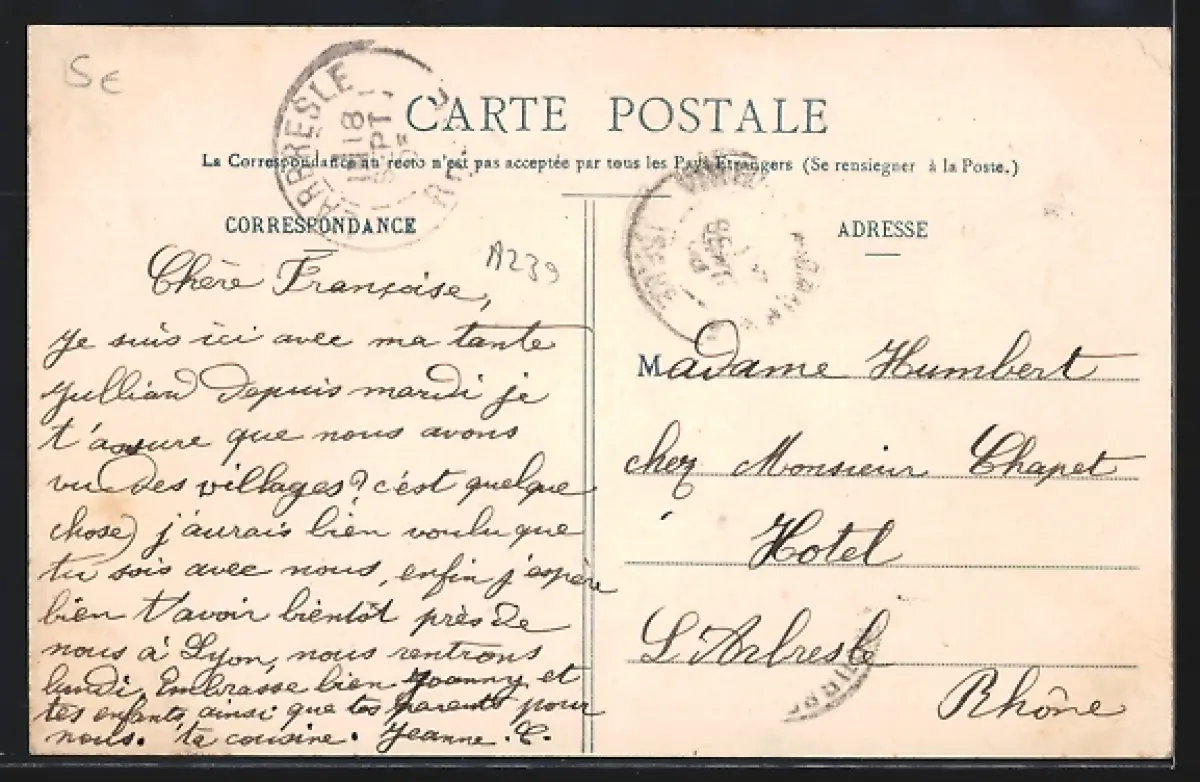 5€
L'ARBRESLE
18
SEPT
CARTE POSTALE
La Correspondance au recto n'est pas acceptée par tous les Pays Etrangers (Se rensiegner à la Poste.)
CORRESPONDANCE
A239
Chère Françoise,
je suis ici avec ma tante
Julliand depuis mardi je
t'assure que nous avons
vu des villages? c'est quelque
chose) j'aurais bien voulu que
tu sois avec nous, enfin j'espère
bien t'avoir bientôt près de
nous à Lyon, nous rentrons
lundi, Embrasse bien Joanny et
tes enfants, ainsi que tes parents pour
nous. ta cousine. Jeanne. C.
ADRESSE
ISÈRE
Madame Humbert
chez Monsieur Chapet
Hotel
L'Arbresle
Rhône